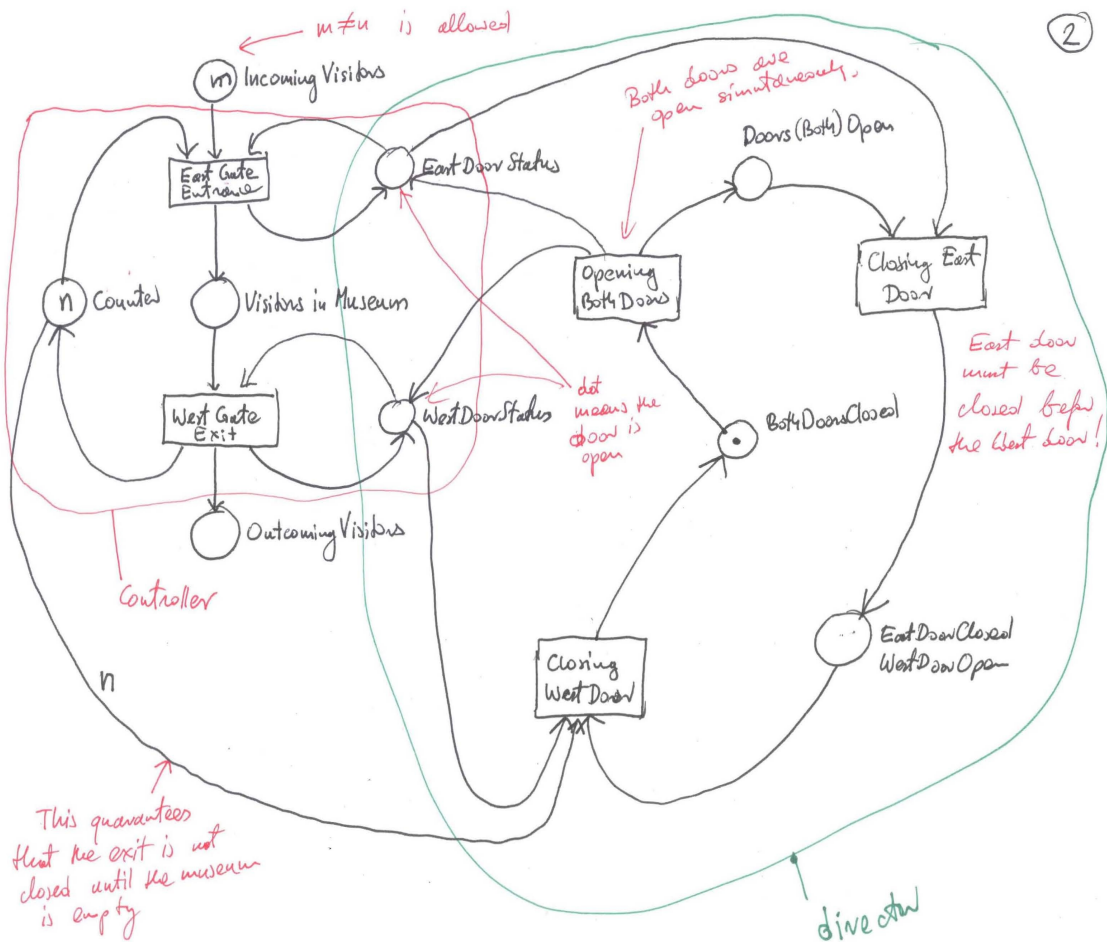 m≠n is allowed
2
m
Incoming Visitors
Both doors are
open simultaneously.
Doors (Both) Open
East Gate
Entrance
East Door Status
Opening
Both Doors
Closing East
Door
n
Counter
Visitors in Museum
East door
must be
closed before
the West door!
West Gate
Exit
West Door Status
dot
means the
door is
open
Both Doors Closed
Outcoming Visitors
Controller
East Door Closed
West Door Open
Closing
West Door
n
This guarantees
that the exit is not
closed until the museum
is empty
director